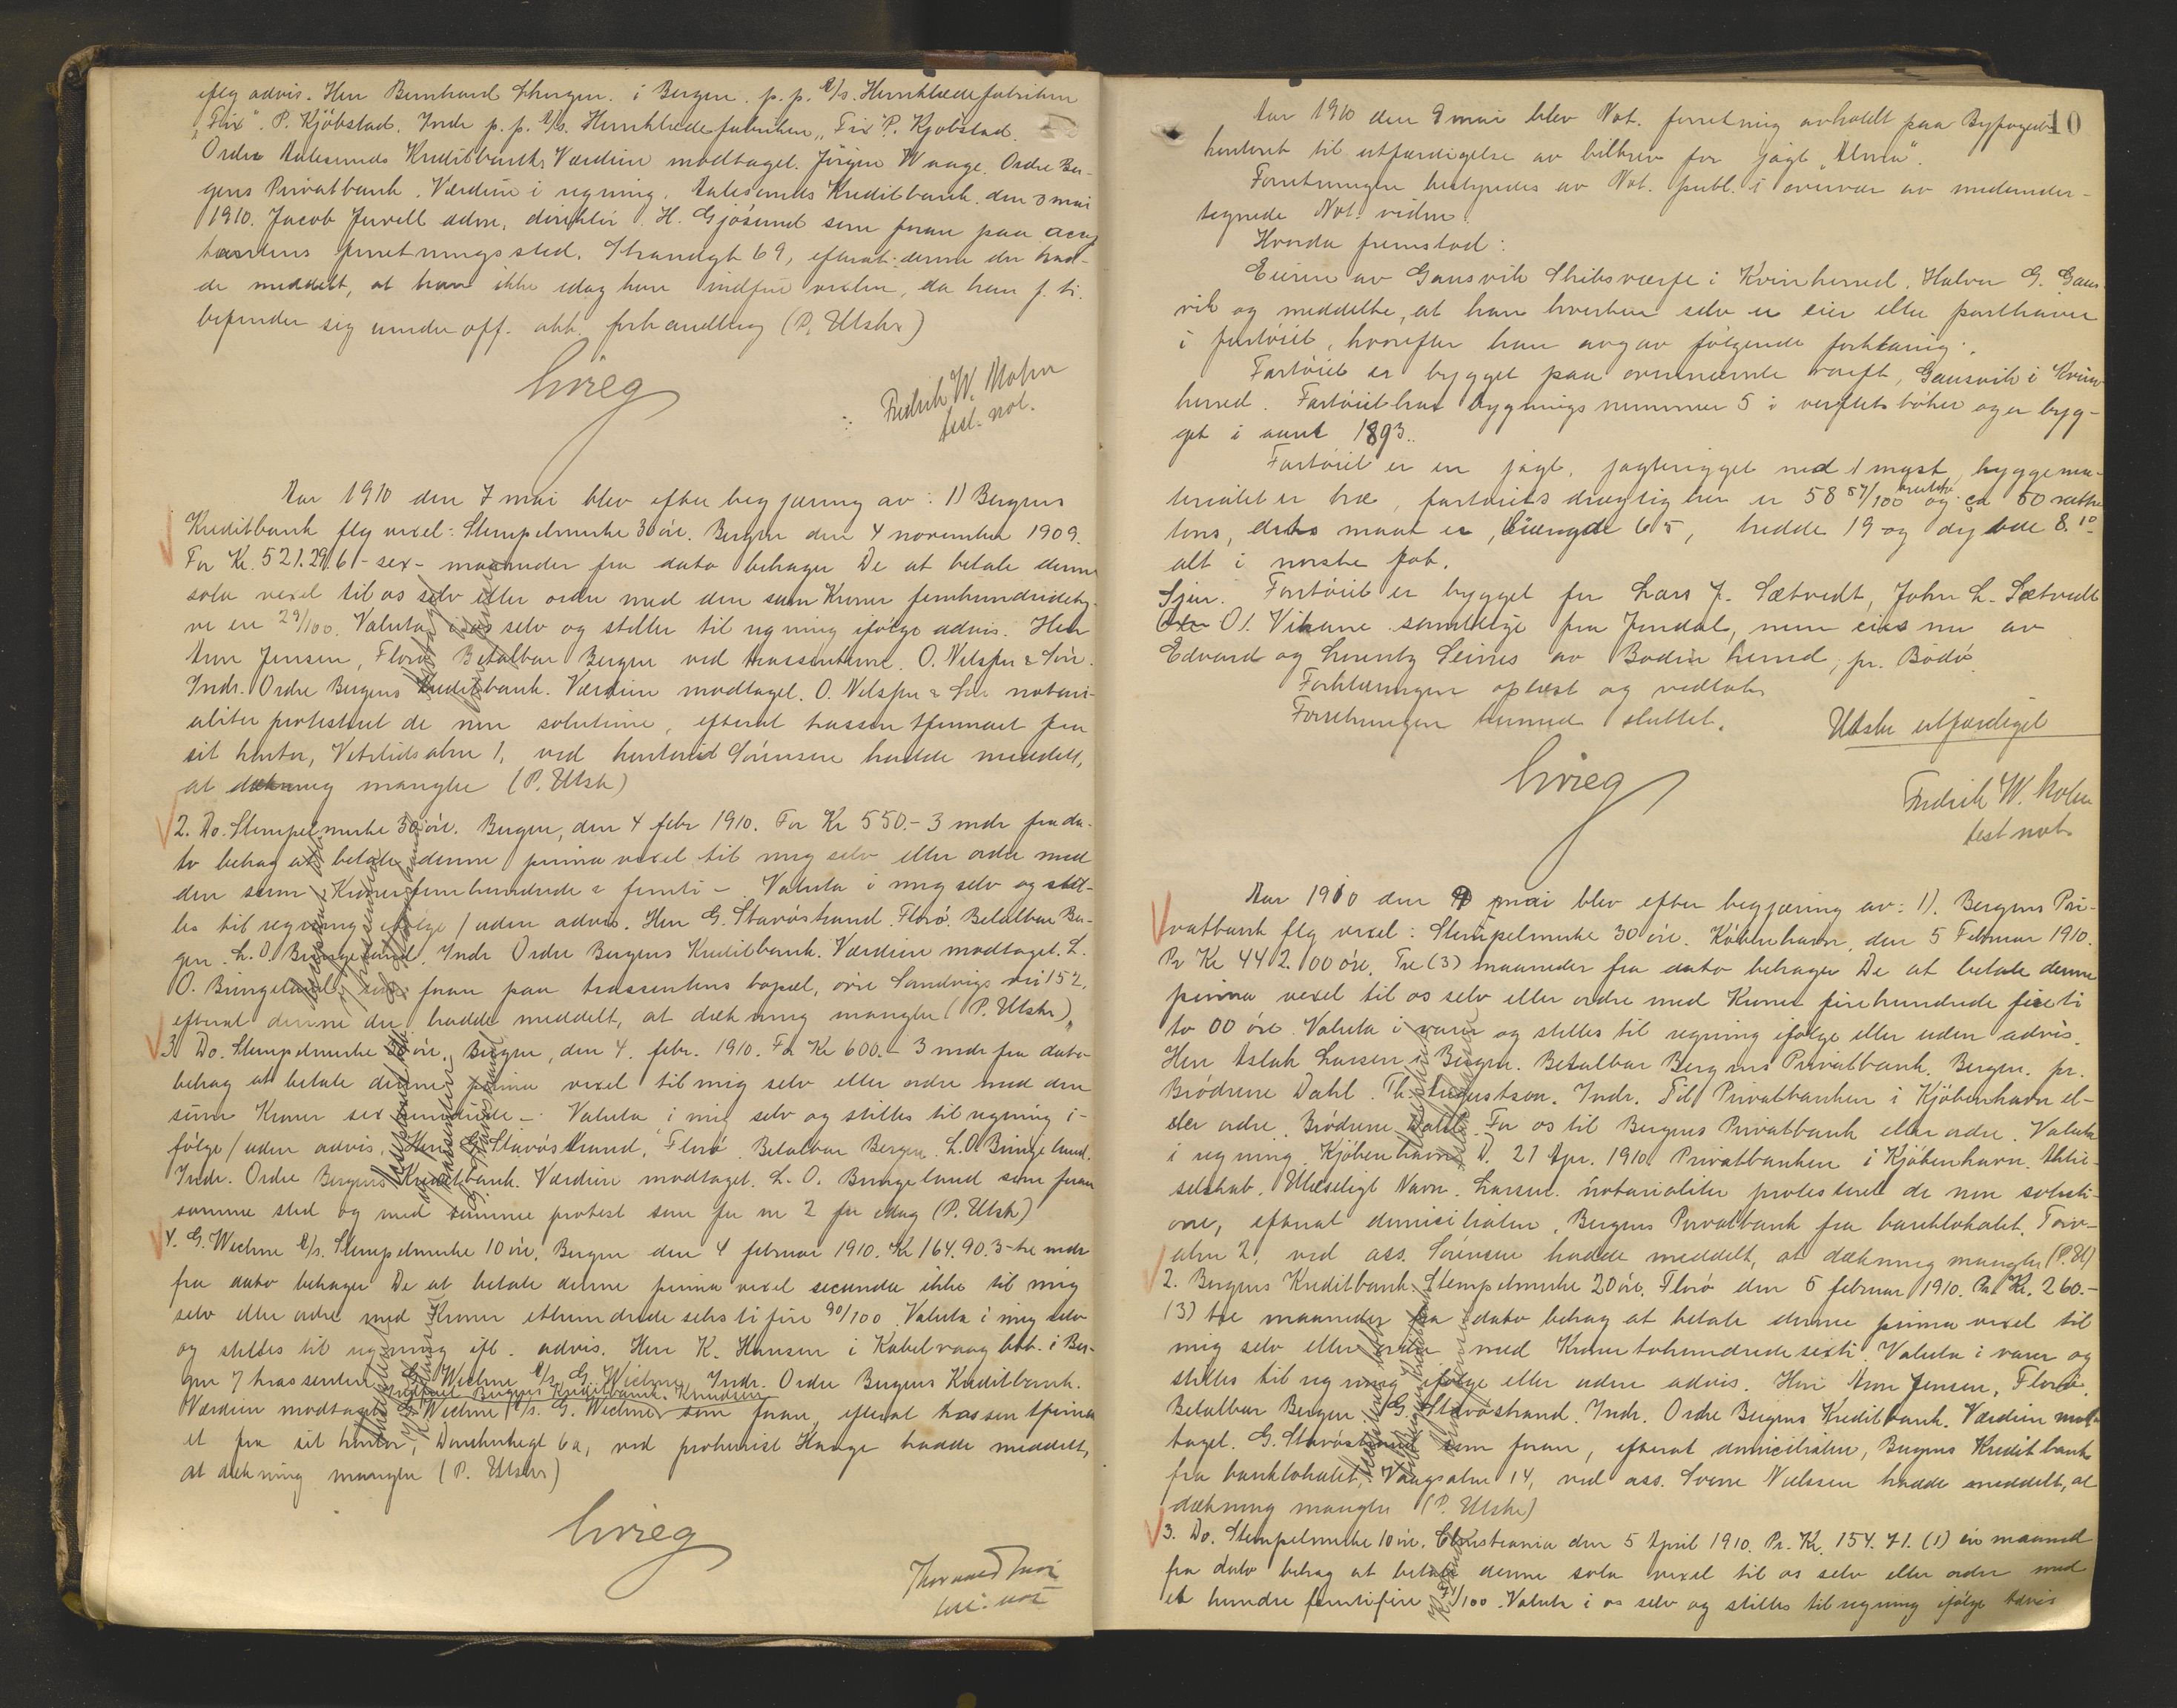 ifølg advis. Herr Bernhard Thorgen. i Bergen. p. p. A/s. Herreklædefabriken
"Fix". P. Kjöbstad. Indr p. p. A/s. Herreklædefabriken "Fix" P. Kjöbstad.
Ordre Aalesunds Kreditbank, Værdien modtaget. Jörgen Waage. Ordre Ber-
gens Privatbank. Værdien i regning. Aalesunds Kreditbank. den 3 mai
1910. Jacob Jervell adm. direktör H. Gjösund som foran paa accep
tantens forretningssted. Strandgt 69, efterat denne der had-
de meddelt, at han ikke idag kan indfri vexlen, da han f. ti.
befinder sig under off. akk. forhandling (P. Utskr)
Grieg
Fredrik W. Mohn
test. not.
Aar 1910 den 7 mai blev efter begjæring av: 1) Bergens
Kreditbank flg vexel: Stempelmerke 30 öre. Bergen den 4 november 1909.
For Kr. 521.29. 6 - sex - maaneder fra dato behager De at betale denne
sola vexel til os selv eller ordre med den sum Kroner femhundredety-
ve en 29/100. Valuta i os selv og stilles til regning ifølge advis. Herr
Arne Jensen, Florö Betalbar Bergen ved trassenterne. O. Nilssen & Sön.
Indr. Ordre Bergens Kreditbank. Værdien modtaget. O. Nilssen & Sön notari-
aliter protesteret de non solutione, efterat trassentfirmaet fra
sit kontor, Vetrlidsalm 1, ved kontorist Sörensen hadde meddelt,
at dækning mangler (P. Utskr)
2. Do. Stempelmerke 30 öre. Bergen, den 4 febr 1910. For Kr 550.- 3 mdr fra da-
to behag at betale denne prima vexel til mig selv eller ordre med
den sum Kroner femhundrede & femti - Valuta i mig selv og stil-
les til regning ifølge / uden advis. Herr G. Stavöstrand. Florö. Betalbar Ber-
gen. L. O. Bringeland. Indr Ordre Bergens Kreditbank. Værdien modtaget. L.
O. Bringeland, som foran paa trassentens bopæl, övre Sandvigs vei 152,
efterat denne der hadde meddelt, at dækning mangler (P. Utskr)
3. Do. Stempelmerke 30 öre. Bergen, den 4. febr. 1910. For Kr 600.- 3 mdr fra dato
behag at betale denne prima vexel til mig selv eller ordre med den
sum Kroner sex hundrede - Valuta i mig selv og stilles til regning i-
følge / uden advis. Herr G. Stavöstrand, Florö. Betalbar Bergen. L. O. Bringeland.
Indr. Ordre Bergens Kreditbank. Værdien modtaget. L. O. Bringeland som foran
samme sted og med samme protest som for nr 2 for idag (P. Utskr)
4. G. Wiechne A/s. Stempelmerke 10 öre. Bergen den 4 februar 1910. Kr 164.90. 3 - tre mdr
fra dato behager De at betale denne prima vexel secunda ikke til mig
selv eller ordre med Kroner ethundrede seksti fire 90/100 Valuta i mig selv
og stilles til regning ifl. advis. Herr K. Hansen i Kabelvaag btb. i Ber-
gen / trassenten G. Wiechne A/s G. Wiechne Indr. Ordre Bergens Kreditbank.
Indfriet Bergens Kreditbank. Knudsen
Værdien modtaget G. Wiechne A/s. G. Wiechne som foran, efterat trassentfirma
et fra sit kontor, Domkirkegt 6a, ved prokurist Hauge hadde meddelt,
at dækning mangler (P. Utskr)
Grieg
test. not
10
Aar 1910 den 9 mai blev Not. forretning avholdt paa Byfogedk
kontoret til utfærdigelse av bilbrev for jagt "Alma".
Forretningen bestyredes av Not. publ. i overvær av medunder-
tegnede Not. vidne.
Hvorda fremstod:
Eieren av Gausvik Skibsværft i Kvinherred. Halvor G. Gaus-
vik og meddelte, at han hverken selv er eier eller parthaver
i fartöiet, hvorefter han avgav fölgende forklaring:
Fartöiet er bygget paa ovennævnte værft, Gausvik i Kvin
herred. Fartöiet har bygningsnummer 5 i verftets böker og er byg-
get i aaret 1893.
Fartöiet er en jagt, jagtrigget med 1 mast, byggema-
terialet er træ, fartöiets drægtighet er 58 57/100 brutto og ca 50 netto
tons, dets maat er, længde 65, bredde 19 og dybde 8.10
alt i norske fot.
Sjer. Fartöiet er bygget for Lars J. Sætvedt, John L. Sætvedt
Ole Ol. Vikane samtlige fra Jondal, men eies nu av
Edvard og Lorentz Seines av Bodin herred, pr. Bodö
Forklaringen oplæst og vedtat.
Forretningen dermed sluttet.
Utskr utfærdiget
Grieg
Fredrik W. Mohn
test not.
Aar 1910 den 9 mai blev efter begjæring av: 1). Bergens Pri-
vatbank flg vexel: Stempelmerke 30 öre. Köbenhavn, den 5 Februar 1910.
Pr Kr 442.00 öre. Tre (3) maaneder fra dato behager De at betale denne
prima vexel til os selv eller ordre med Kroner firehundrede firti
to 00 öre. Valuta i varer og stilles til regning ifølge eller uden advis.
Herr Aslak Larsen i Bergen. Betalbar Bergens Privatbank, Bergen. pr.
Brödrene Dahl. Th. Augustson. Indr. Til Privatbanken i Kjöbenhavn el-
eler ordre. Brödrene Dahl. For os til Bergens Privatbank eller ordre. Valuta
i regning. Kjöbenhavn D. 21 Apr. 1910. Privatbanken i Kjöbenhavn. Aktie-
selskab. Ulæseligt Navn. Larsen. notarialiter protesteret de non soluti-
one, efterat domiciliaten, Bergens Privatbank fra banklokalet, Torv-
alm 2, ved ass. Sörensen hadde meddelt, at dækning mangler (P. Ut)
2. Bergens Kreditbank. Stempelmerke 20 öre, Florö den 5 februar 1910. Pr Kr. 260.-
(3) tre maaneder fra dato behag at betale denne prima vexel til
mig selv eller ordre med Kroner tohundrede sexti. Valuta i varer og
stilles til regning ifølge eller uden advis. Herr Arne Jensen, Florö.
Betalbar Bergen. G. Stavöstrand. Indr. Ordre Bergens Kreditbank. Værdien mot
taget. G. Stavöstrand som foran, efterat domiciliaten, Bergens Kreditbank
fra banklokalet, Vaagsalm 14, ved ass. Sverre Nielssen hadde meddelt, at
dækning mangler (P. Utskr)
3. Do. Stempelmerke 10 öre, Christiania den 5 April 1910. Pr. Kr. 154.71. (1) en maaned
fra dato behag at betale denne sola vexel til os selv eller ordre med
et hundre femtifire 71/100. Valuta i os selv og stilles til regning ifølge advis